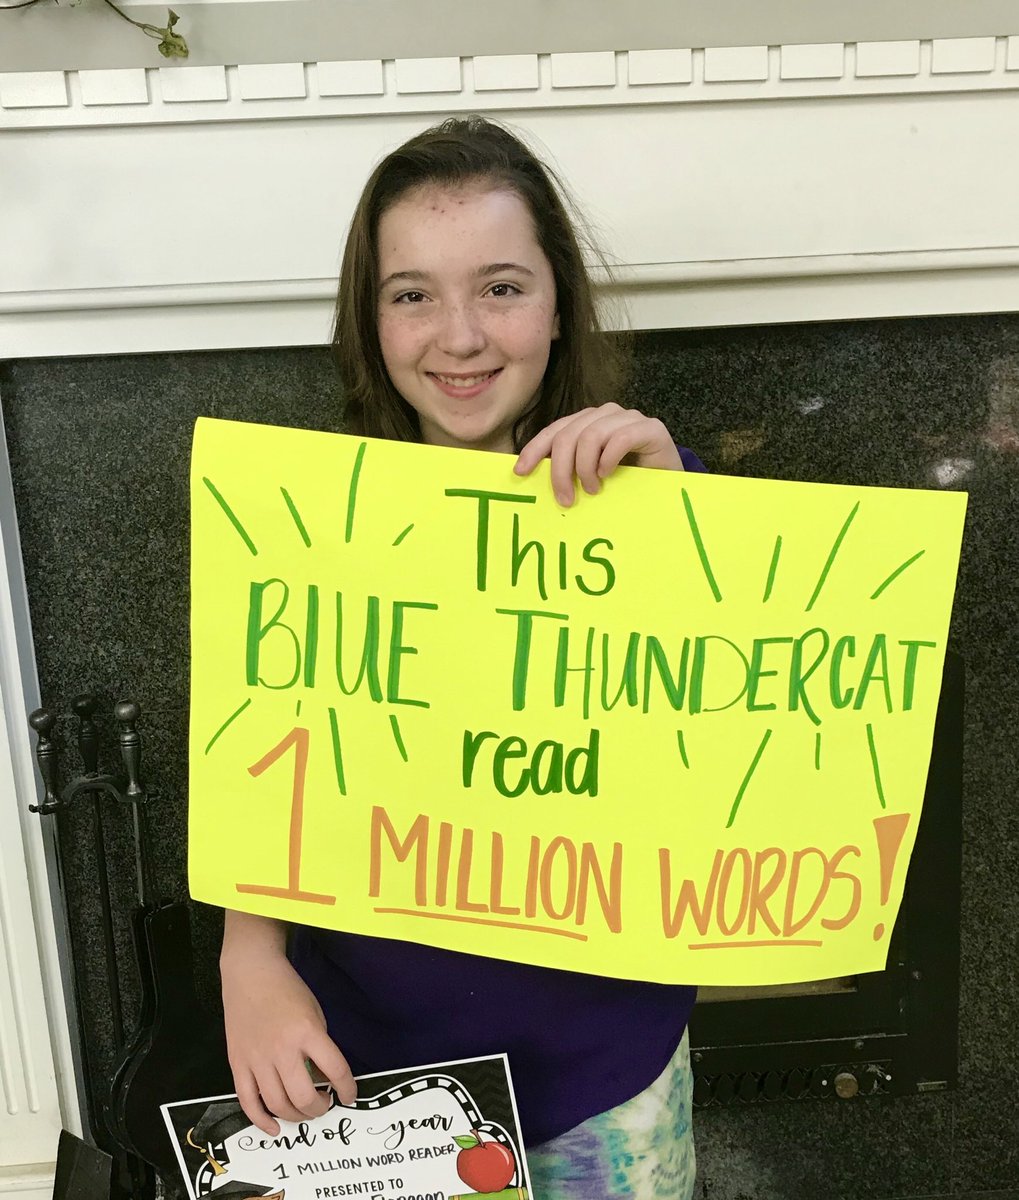 This
BlUE THUNDERCAT
read
1 MILLION WORDS!
end of year
1 MILLION WORD READER
PRESENTED TO